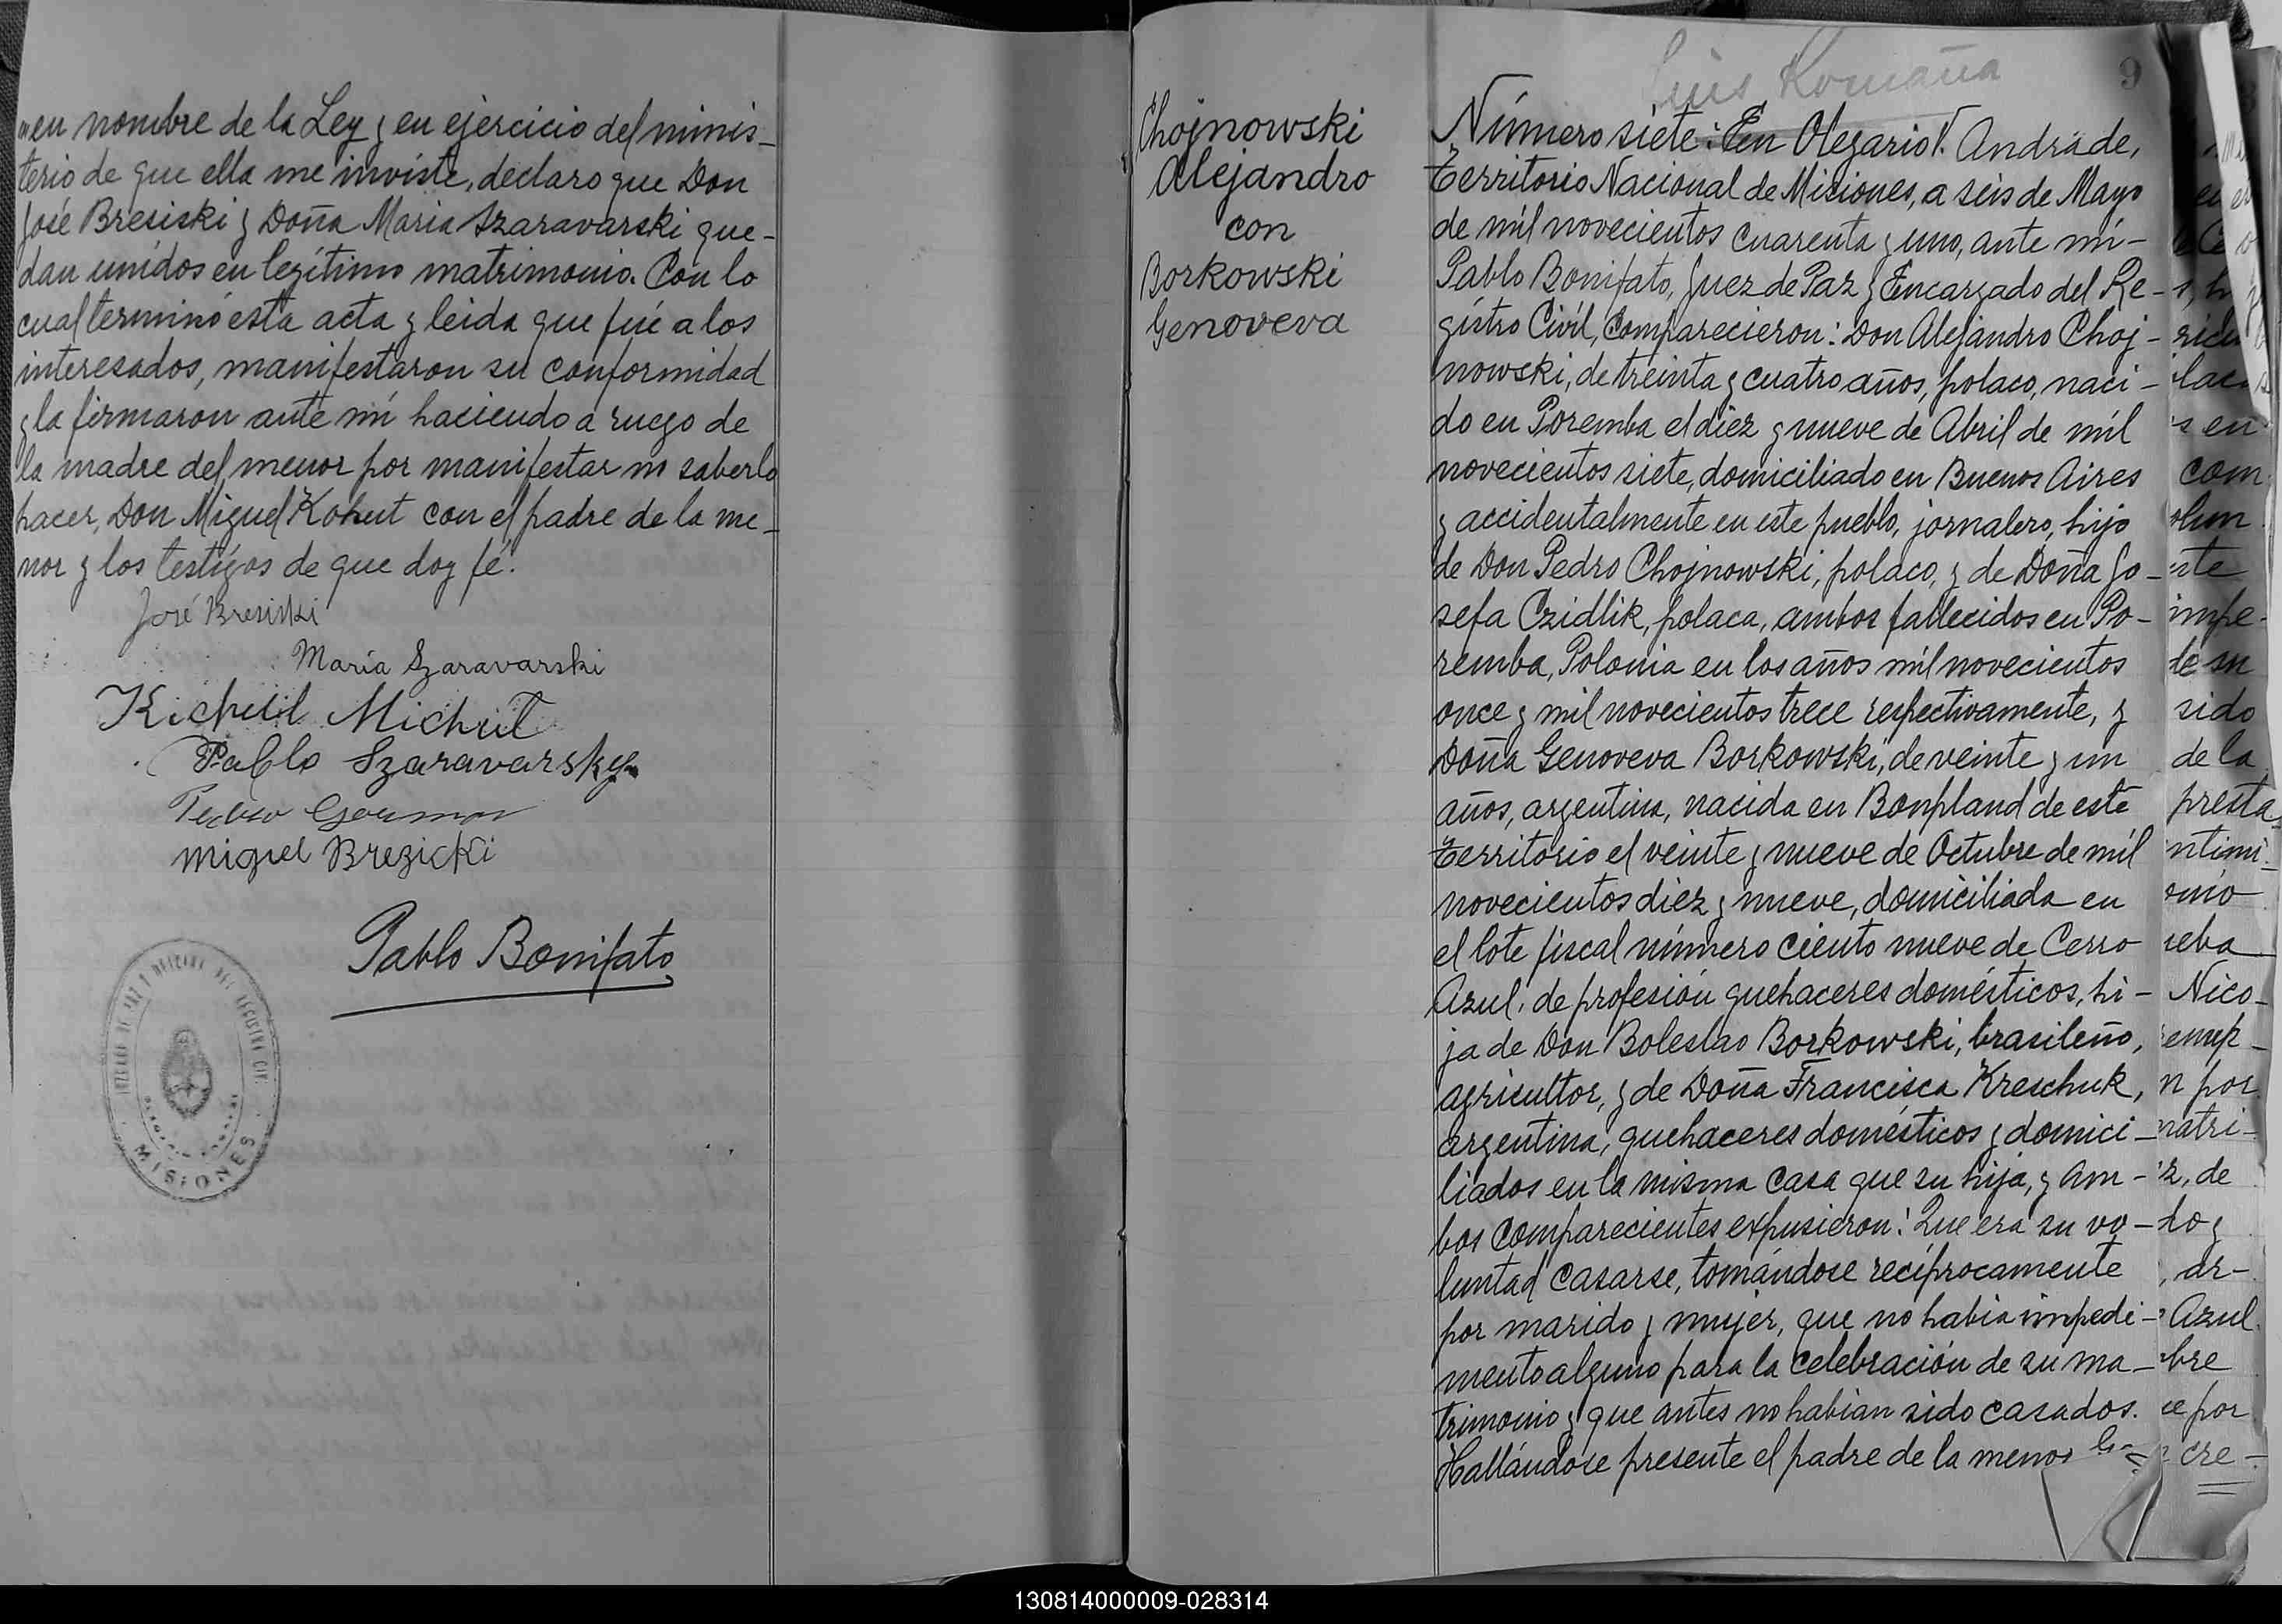 en nombre de la Ley y en ejercicio del minis-
terio de que ella me inviste, declaro que Don
José Bresiski y Doña Maria Szaravarski que-
dan unidos en legítimo matrimonio. Con lo
cual terminó esta acta y leida que fué a los
interesados, manifestaron su conformidad
y la firmaron ante mí haciendo a ruego de
la madre del menor por manifestar no saberlo
hacer, Don Miguel Kohut con el padre de la me-
nor y los testigos de que doy fé.
José Bresiski
María Szaravarski
Michuł
Pablo Szaravarsky
Pedro
Miguel Brezicki
Pablo Bonifato
REGISTRO CIVIL
MISIONES
Chojnowski
Alejandro
con
Borkowski
Genoveva
Luis Romaña
9
Número siete: En Olegario V. Andrade,
Territorio Nacional de Misiones, a seis de Mayo
de mil novecientos cuarenta y uno, ante mí-
Pablo Bonifato, Juez de Paz y Encargado del Re-
gistro Civil, Comparecieron: Don Alejandro Choj-
nowski, de treinta y cuatro años, polaco, naci-
do en Poremba el diez y nueve de Abril de mil
novecientos siete, domiciliado en Buenos Aires
y accidentalmente en este pueblo, jornalero, hijo
de Don Pedro Chojnowski, polaco, y de Doña Jo-
sefa Czidlik, polaca, ambos fallecidos en Po-
remba, Polonia en los años mil novecientos
once y mil novecientos trece respectivamente, y
Doña Genoveva Borkowski, de veinte y un
años, argentina, nacida en Bonpland de este
Territorio el veinte y nueve de Octubre de mil
novecientos diez y nueve, domiciliada en
el lote fiscal número ciento nueve de Cerro
Azul, de profesión quehaceres domésticos, hi-
ja de Don Boleslao Borkowski, brasileño,
agricultor, y de Doña Francisca Kreschuk,
argentina, quehaceres domésticos y domici-
liados en la misma casa que su hija, y am-
bos comparecientes expusieron: Que era su vo-
luntad casarse, tomándose recíprocamente
por marido y mujer, que no habia impedi-
mento alguno para la celebración de su ma-
trimonio y que antes no habian sido casados.
Hallándose presente el padre de la menor
en
com
impe-
de su
sido
de la
presta
Nico-
n por
de
Azul
por
cre-
130814000009-028314